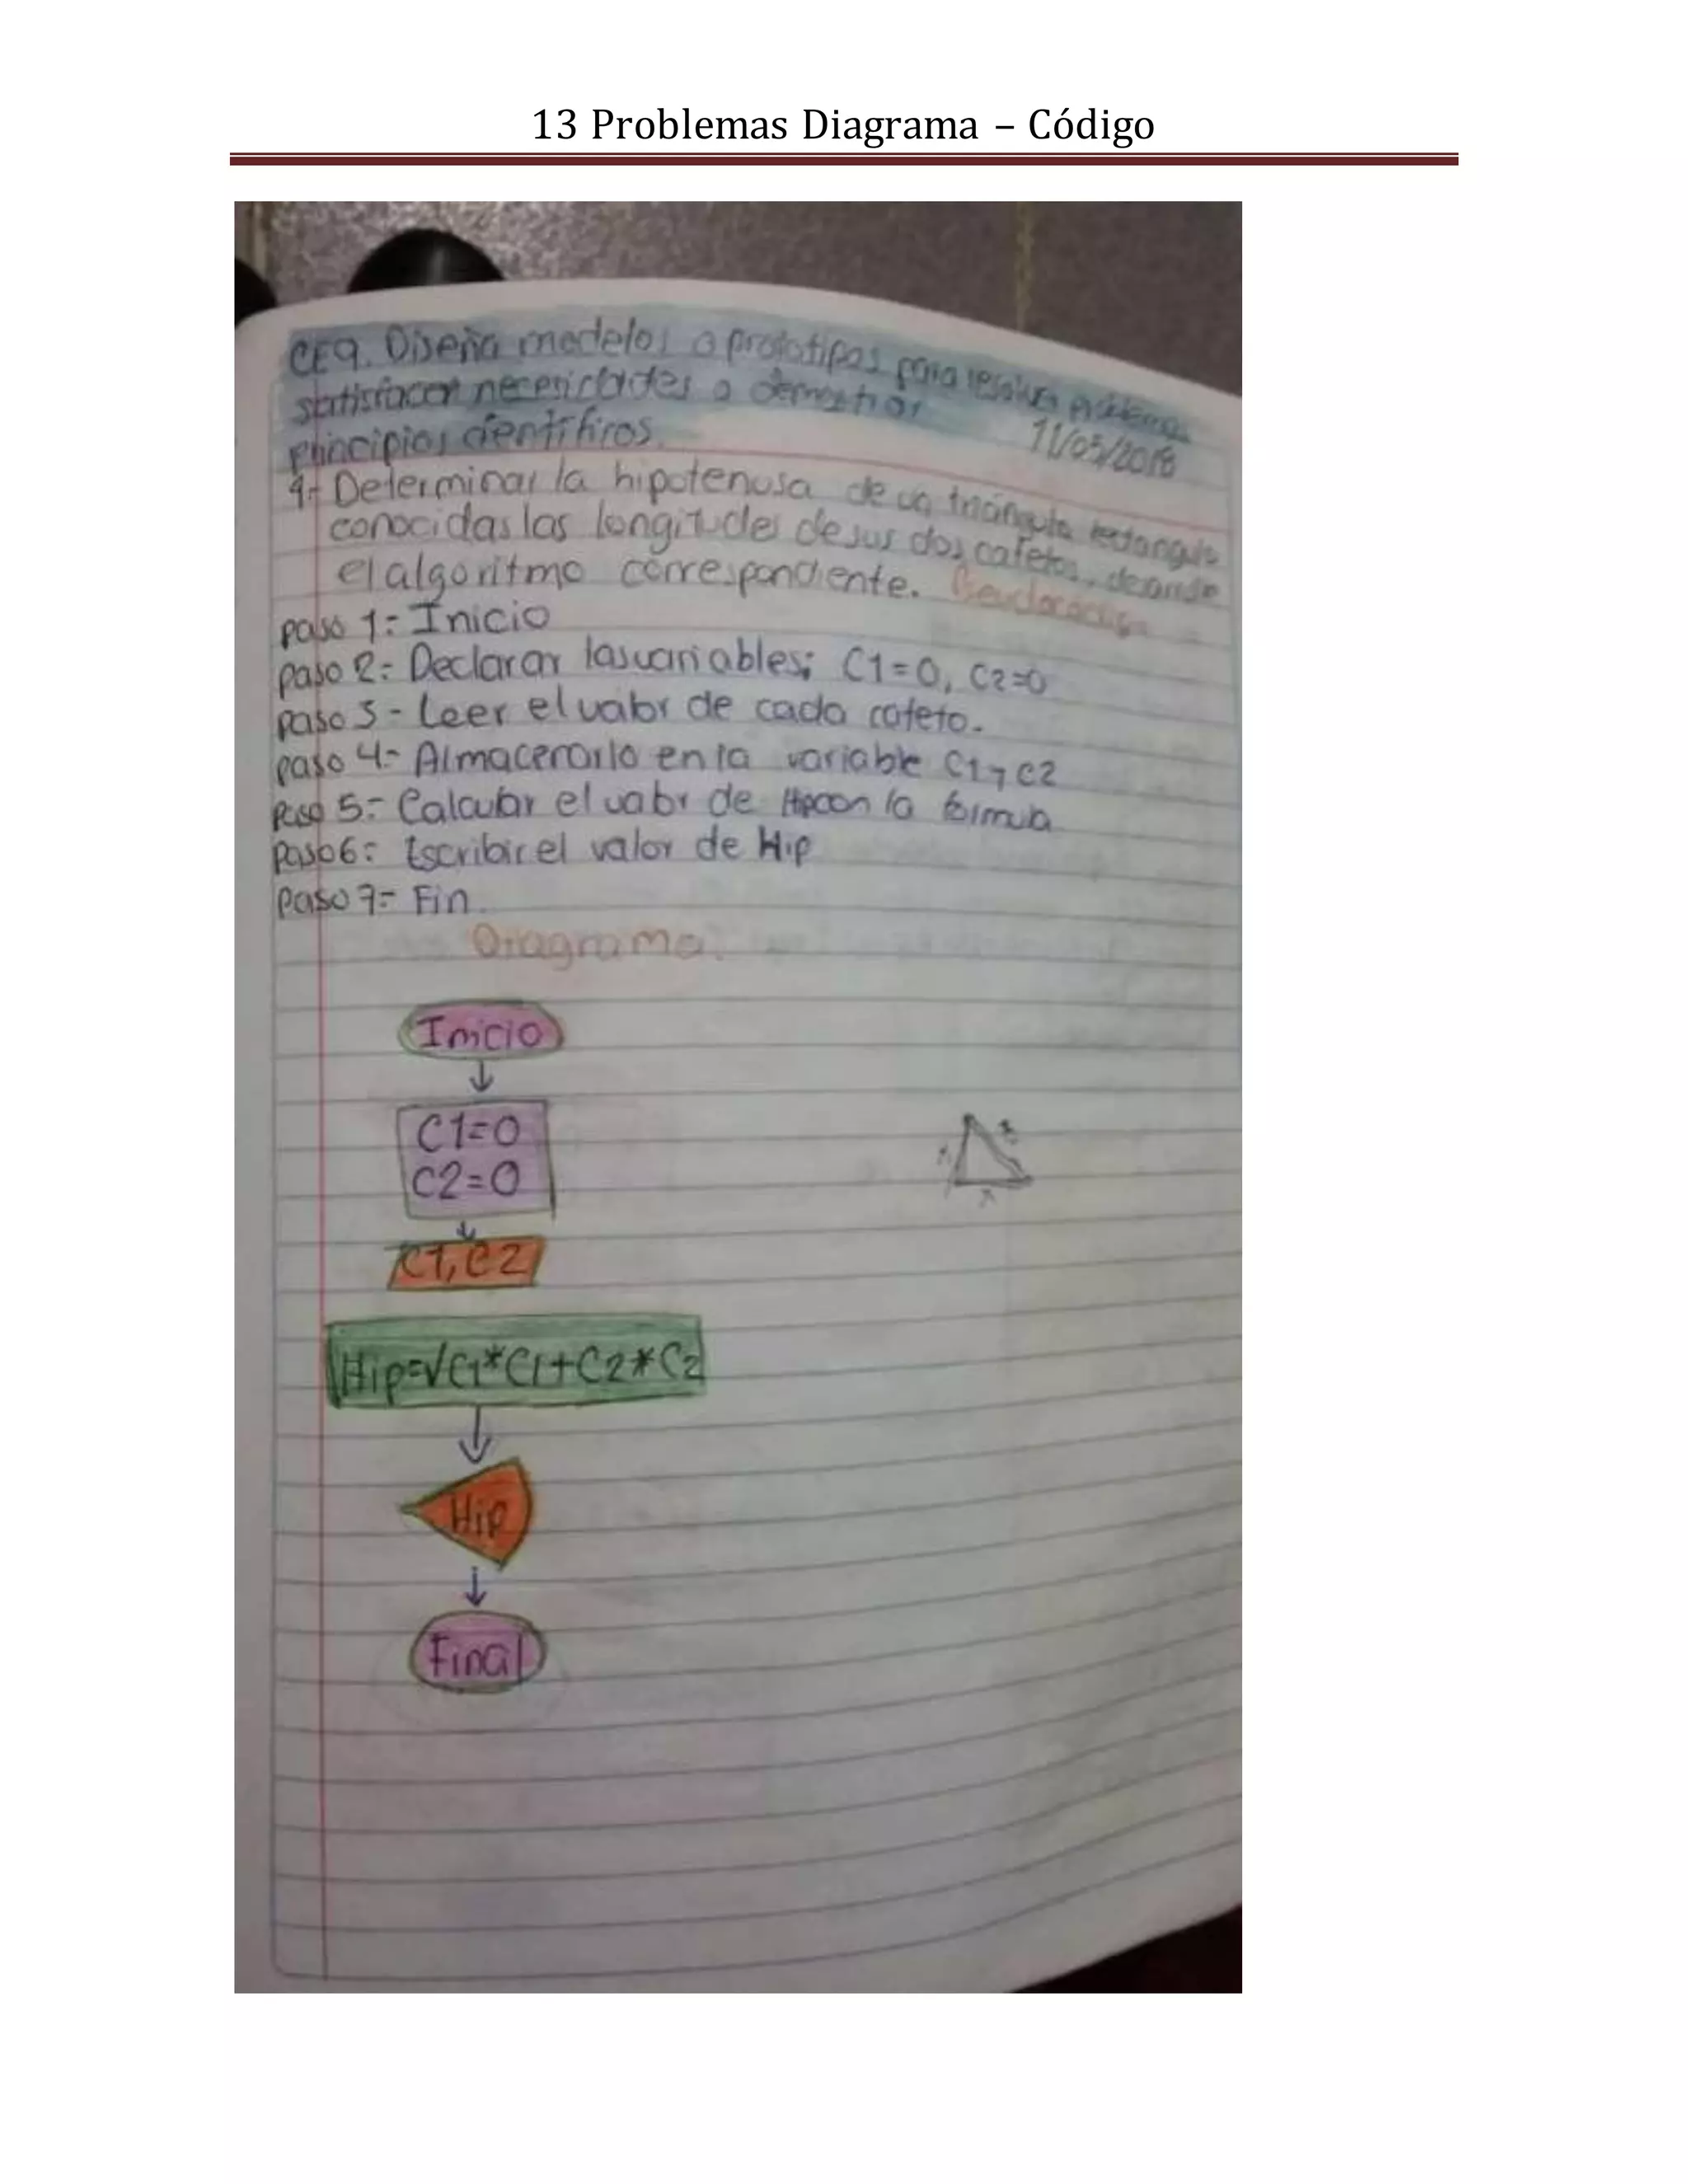 13 Problemas Diagrama – Código
CE9. Diseña modelos o prototipos para resolver problemas
satisfacer necesidades o demostrar
principios científicos.
11/05/2018
4- Determinar la hipotenusa de un triángulo rectangulo
conocidas las longitudes de sus dos catetos. desarrolle
el algoritmo correspondiente. Pseudocódigo
paso 1:- Inicio
paso 2:- Declarar las variables; C1=0, C2=0
paso 3- Leer el valor de cada cateto.
paso 4- Almacenarlo en la variable C1 y C2
Paso 5:- Calcular el valor de Hip con la formula
Paso 6: Escribir el valor de Hip
Paso 7- Fin
Diagrama.
Inicio
C1=0
C2=0
C1, C2
Hip=√C1*C1+C2*C2
Hip
Final